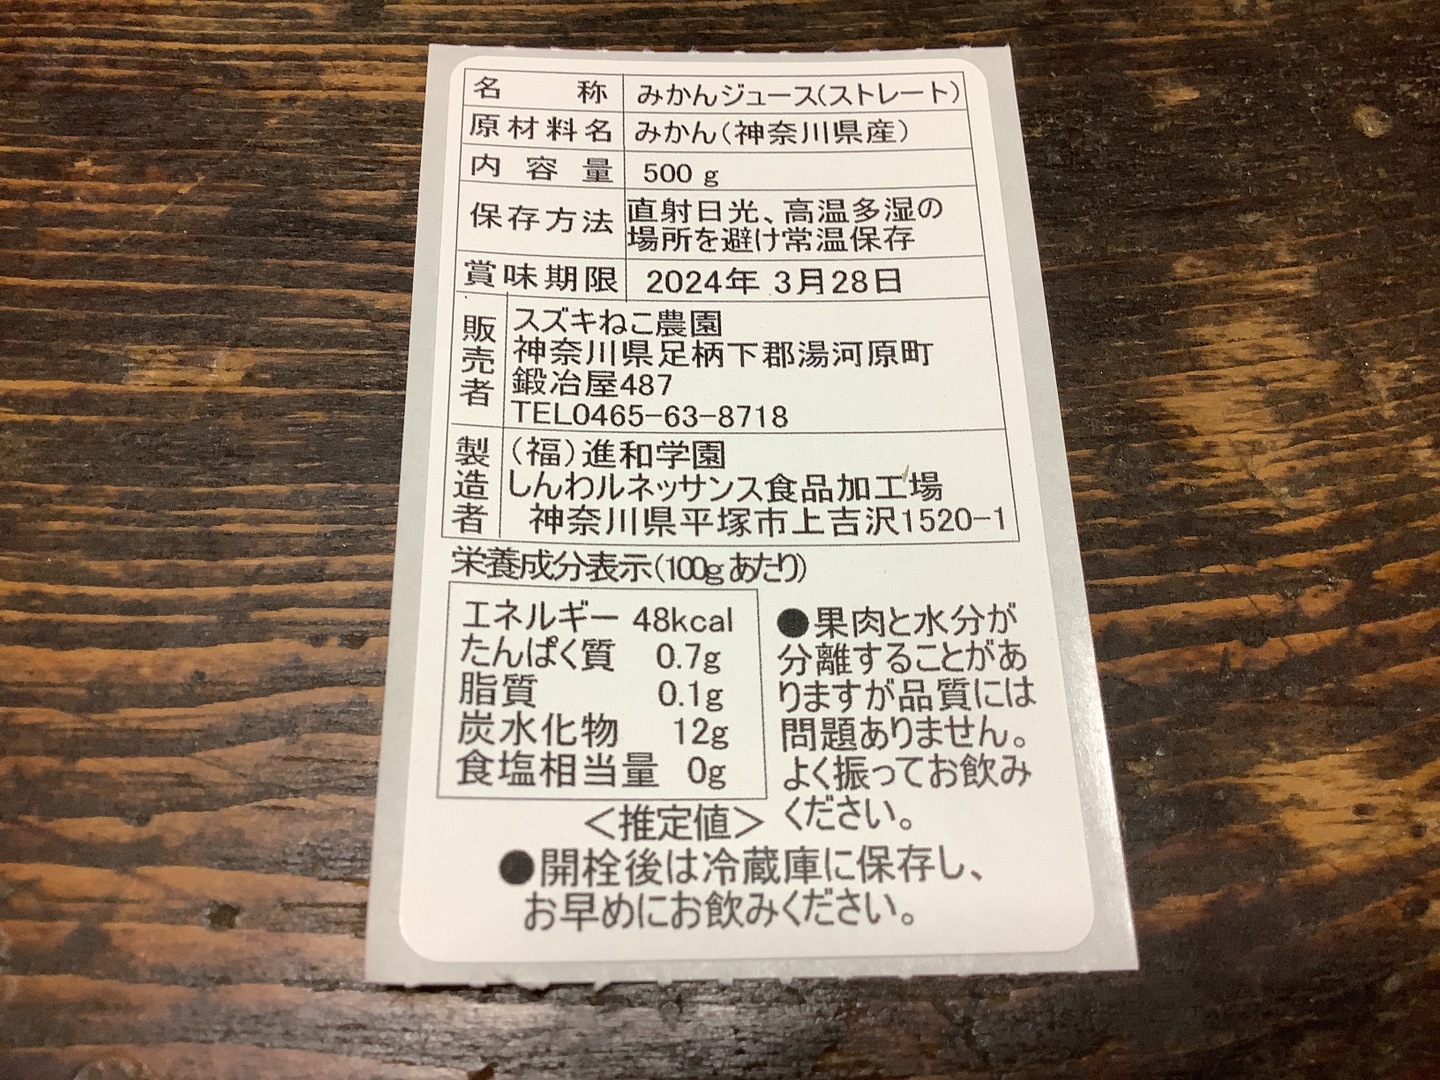 名称 みかんジュース(ストレート)
原材料名 みかん(神奈川県産)
内容量 500 g
保存方法 直射日光、高温多湿の
場所を避け常温保存
賞味期限 2024年 3月28日
販売者 スズキねこ農園
神奈川県足柄下郡湯河原町
鍛冶屋487
TEL0465-63-8718
製造者 (福)進和学園
しんわルネッサンス食品加工場
神奈川県平塚市上吉沢1520-1
栄養成分表示(100gあたり)
エネルギー 48kcal
たんぱく質 0.7g
脂質 0.1g
炭水化物 12g
食塩相当量 0g
<推定値>
●果肉と水分が
分離することがあ
りますが品質には
問題ありません。
よく振ってお飲み
ください。
●開栓後は冷蔵庫に保存し、
お早めにお飲みください。